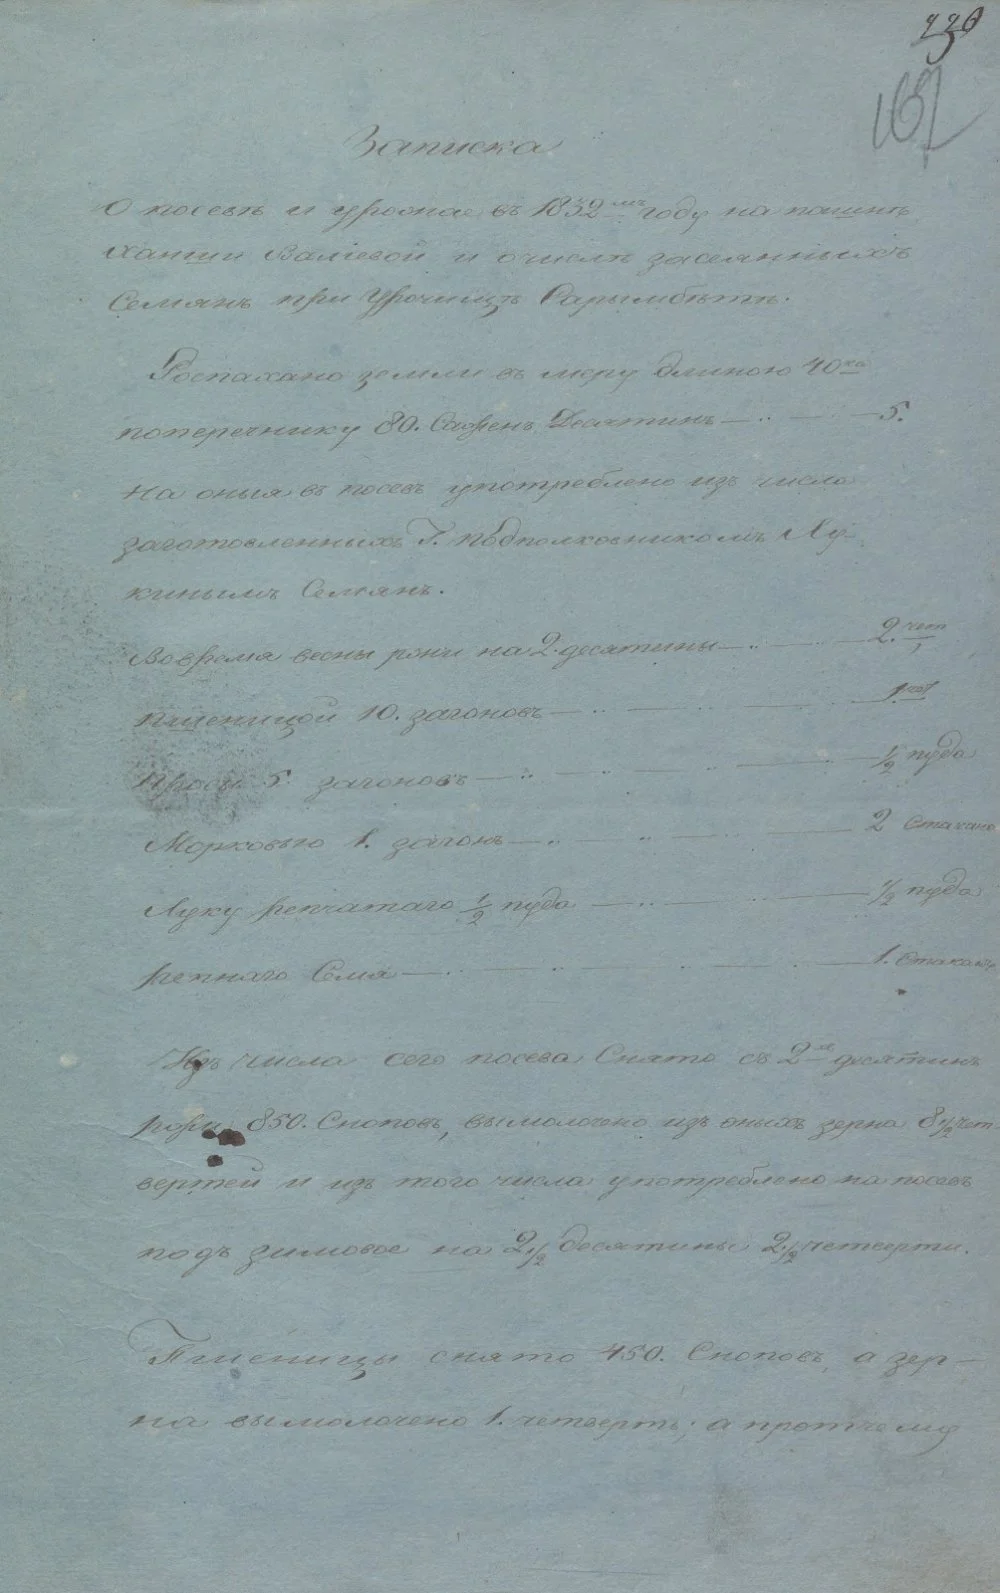 162
Записка
О посевѣ и урожае въ 1832мъ году на пашнѣ
Ханши Валіевой и о числѣ засеянныхъ
Семянъ при Урочищѣ Сарымбѣтъ.
Роспахано земли въ меру длиною 40ка
поперечнику 80. Сажень Десятинъ — 5.
На оныя въ посевъ употреблено изъ числа
заготовленныхъ Г. Подполковникомъ Лу-
кинымъ Семянъ.
Вовремя весны ржи на 2. десятины — 2. чет
пшеницой 10. загоновъ — 1. чет
просы 5. загоновъ — 1/2 пуда
Морковью 1. загонъ — 2 Стакана
Луку репчатаго 1/2 пуда — 1/2 пуда
репнаго Семя — 1. Стаканъ
Изъ числа сего посева Снято съ 2хъ десятинъ
ржи 850. Сноповъ, вымолочено изъ оныхъ зерна 8 1/2 чет
вертей и изъ того числа употреблено на посевъ
подъ зимовое на 2 1/2 десятины 2 1/2 четверти.
Пшеницы снято 450. Сноповъ, а зер-
на вымолочено 1. четверть; а протчему